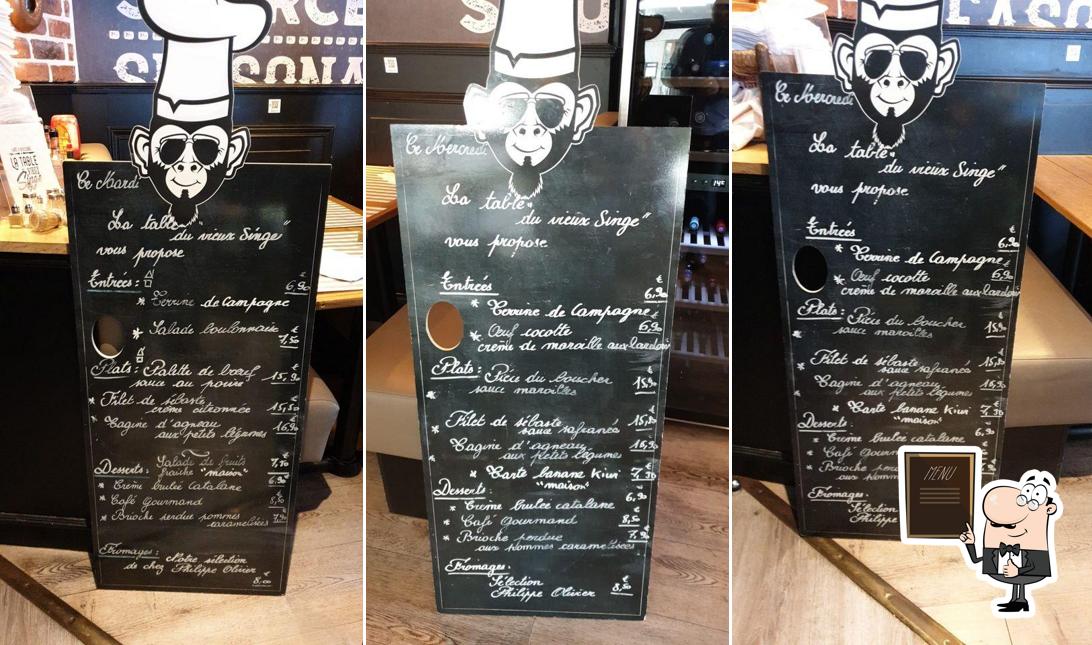 SEASONA
LA TABLE
Ce Mardi
La table
du vieux Singe"
vous propose
Entrées :
6,90
* Terrine de Campagne
* Salade boulonnaise
7,50
Plats : Palette de bœuf
sauce au poivre 15,90
* Filet de sébaste
crème citronnée 15,50
* Tagine d'agneau
aux petits légumes 16,90
Desserts : Salade de fruits
fraîche "maison" 7,50
* Crème brulée Catalane 6,90
* Café Gourmand 8,50
* Brioche perdue pommes 7,90
caramelisées
Fromages : Notre sélection
de chez Philippe Olivier
8,00
Ce Mercredi
La table
du vieux Singe"
vous propose
Entrées
6,90
* Terrine de Campagne
* Oeuf cocotte 6,90
crème de maroille aux lardons
Plats : Pièce du boucher
sauce maroilles 15,90
* Filet de sébaste
sauce safranée 15,80
* Tagine d'agneau
aux petits légumes 16,90
* Tarte banane Kiwi
"maison" 7,50
Desserts :
* Crème brulee catalane 6,90
* Café Gourmand 8,50
* Brioche perdue 7,90
aux pommes caramelisées
Fromages.
Sélection
Philippe Olivier 8,50
Ce Mercredi
La table
du vieux Singe"
vous propose
Entrées
6,90
* Terrine de Campagne
* Oeuf cocotte 6,90
crème de maroille aux lardons
Plats : Pièce du boucher
sauce maroilles
* Filet de sébaste
sauce safranée 15,80
* Tagine d'agneau
aux petits légumes 16,90
* Tarte banane Kiwi
"maison" 7,50
Desserts :
* Crème brulee catalane 6,90
* Café
* Brioche
Fromages :
Sélection
Philippe
MENU